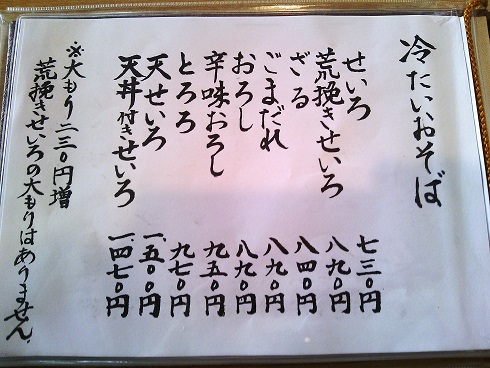 冷たいおそば
せいろ 七三〇円
荒挽きせいろ 八九〇円
ざる 八四〇円
ごまだれ 八九〇円
おろし 八九〇円
辛味おろし 九五〇円
とろろ 九七〇円
天せいろ 一、五〇〇円
天丼付きせいろ 一、四七〇円
※大もり二三〇円増
荒挽きせいろの大もりはありません。